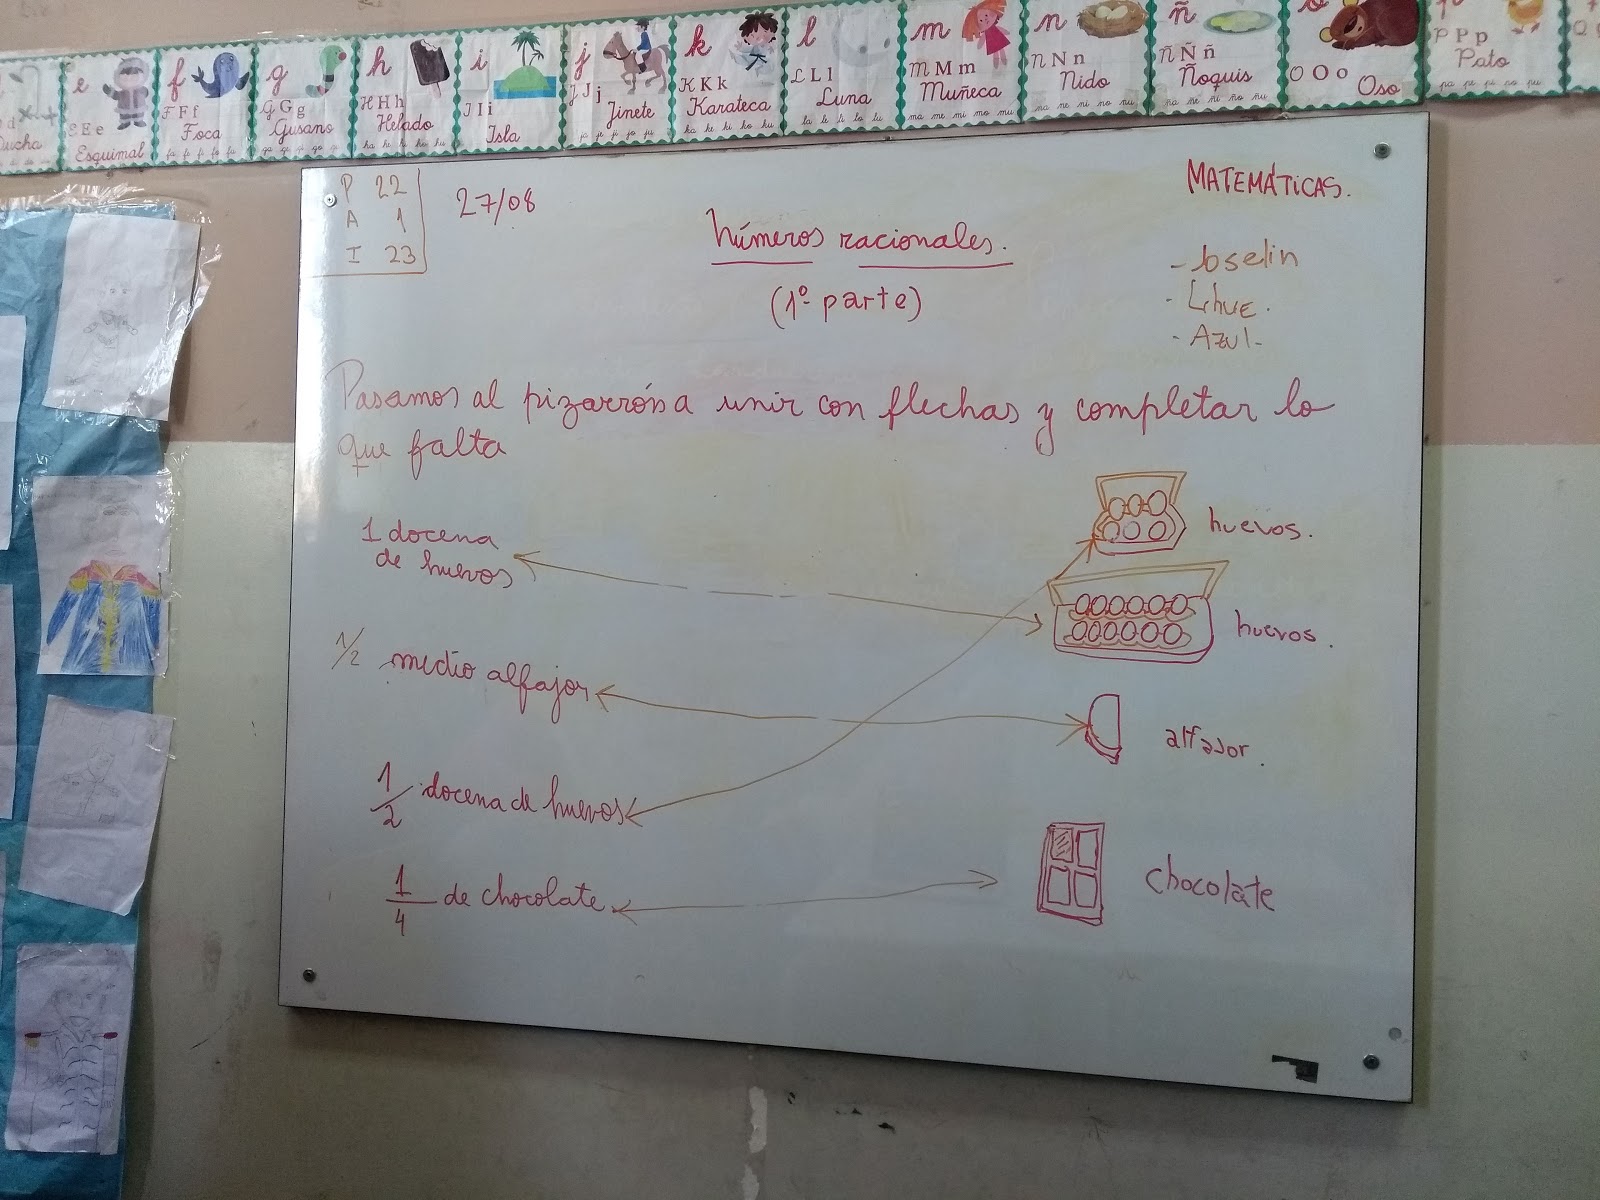 e
E e
Esquimal
f
F F f
Foca
fa fe fi fo fu
g
G G g
Gusano
h
H H h
Helado
i
I I i
Isla
j
J J j
Jinete
ja je ji jo ju
k
K K k
Karateca
ka ke ki ko ku
l
L L l
Luna
la le li lo lu
m
m M m
Muñeca
ma me mi mo mu
n
n N n
Nido
na ne ni no nu
ñ
ñ Ñ ñ
Ñoquis
ña ñe ñi ño ñu
O O o
Oso
P P p
Pato
pa pe pi po pu
P 22
A 1
I 23
27/08
MATEMÁTICAS.
Números racionales.
(1º parte)
- Joselin
- Lihue.
- Azul-
Pasamos al pizarrón a unir con flechas y completar lo
que falta
1 docena
de huevos
huevos.
huevos.
1/2 medio alfajor
alfajor.
1/2 docena de huevos
1/4 de chocolate
chocolate